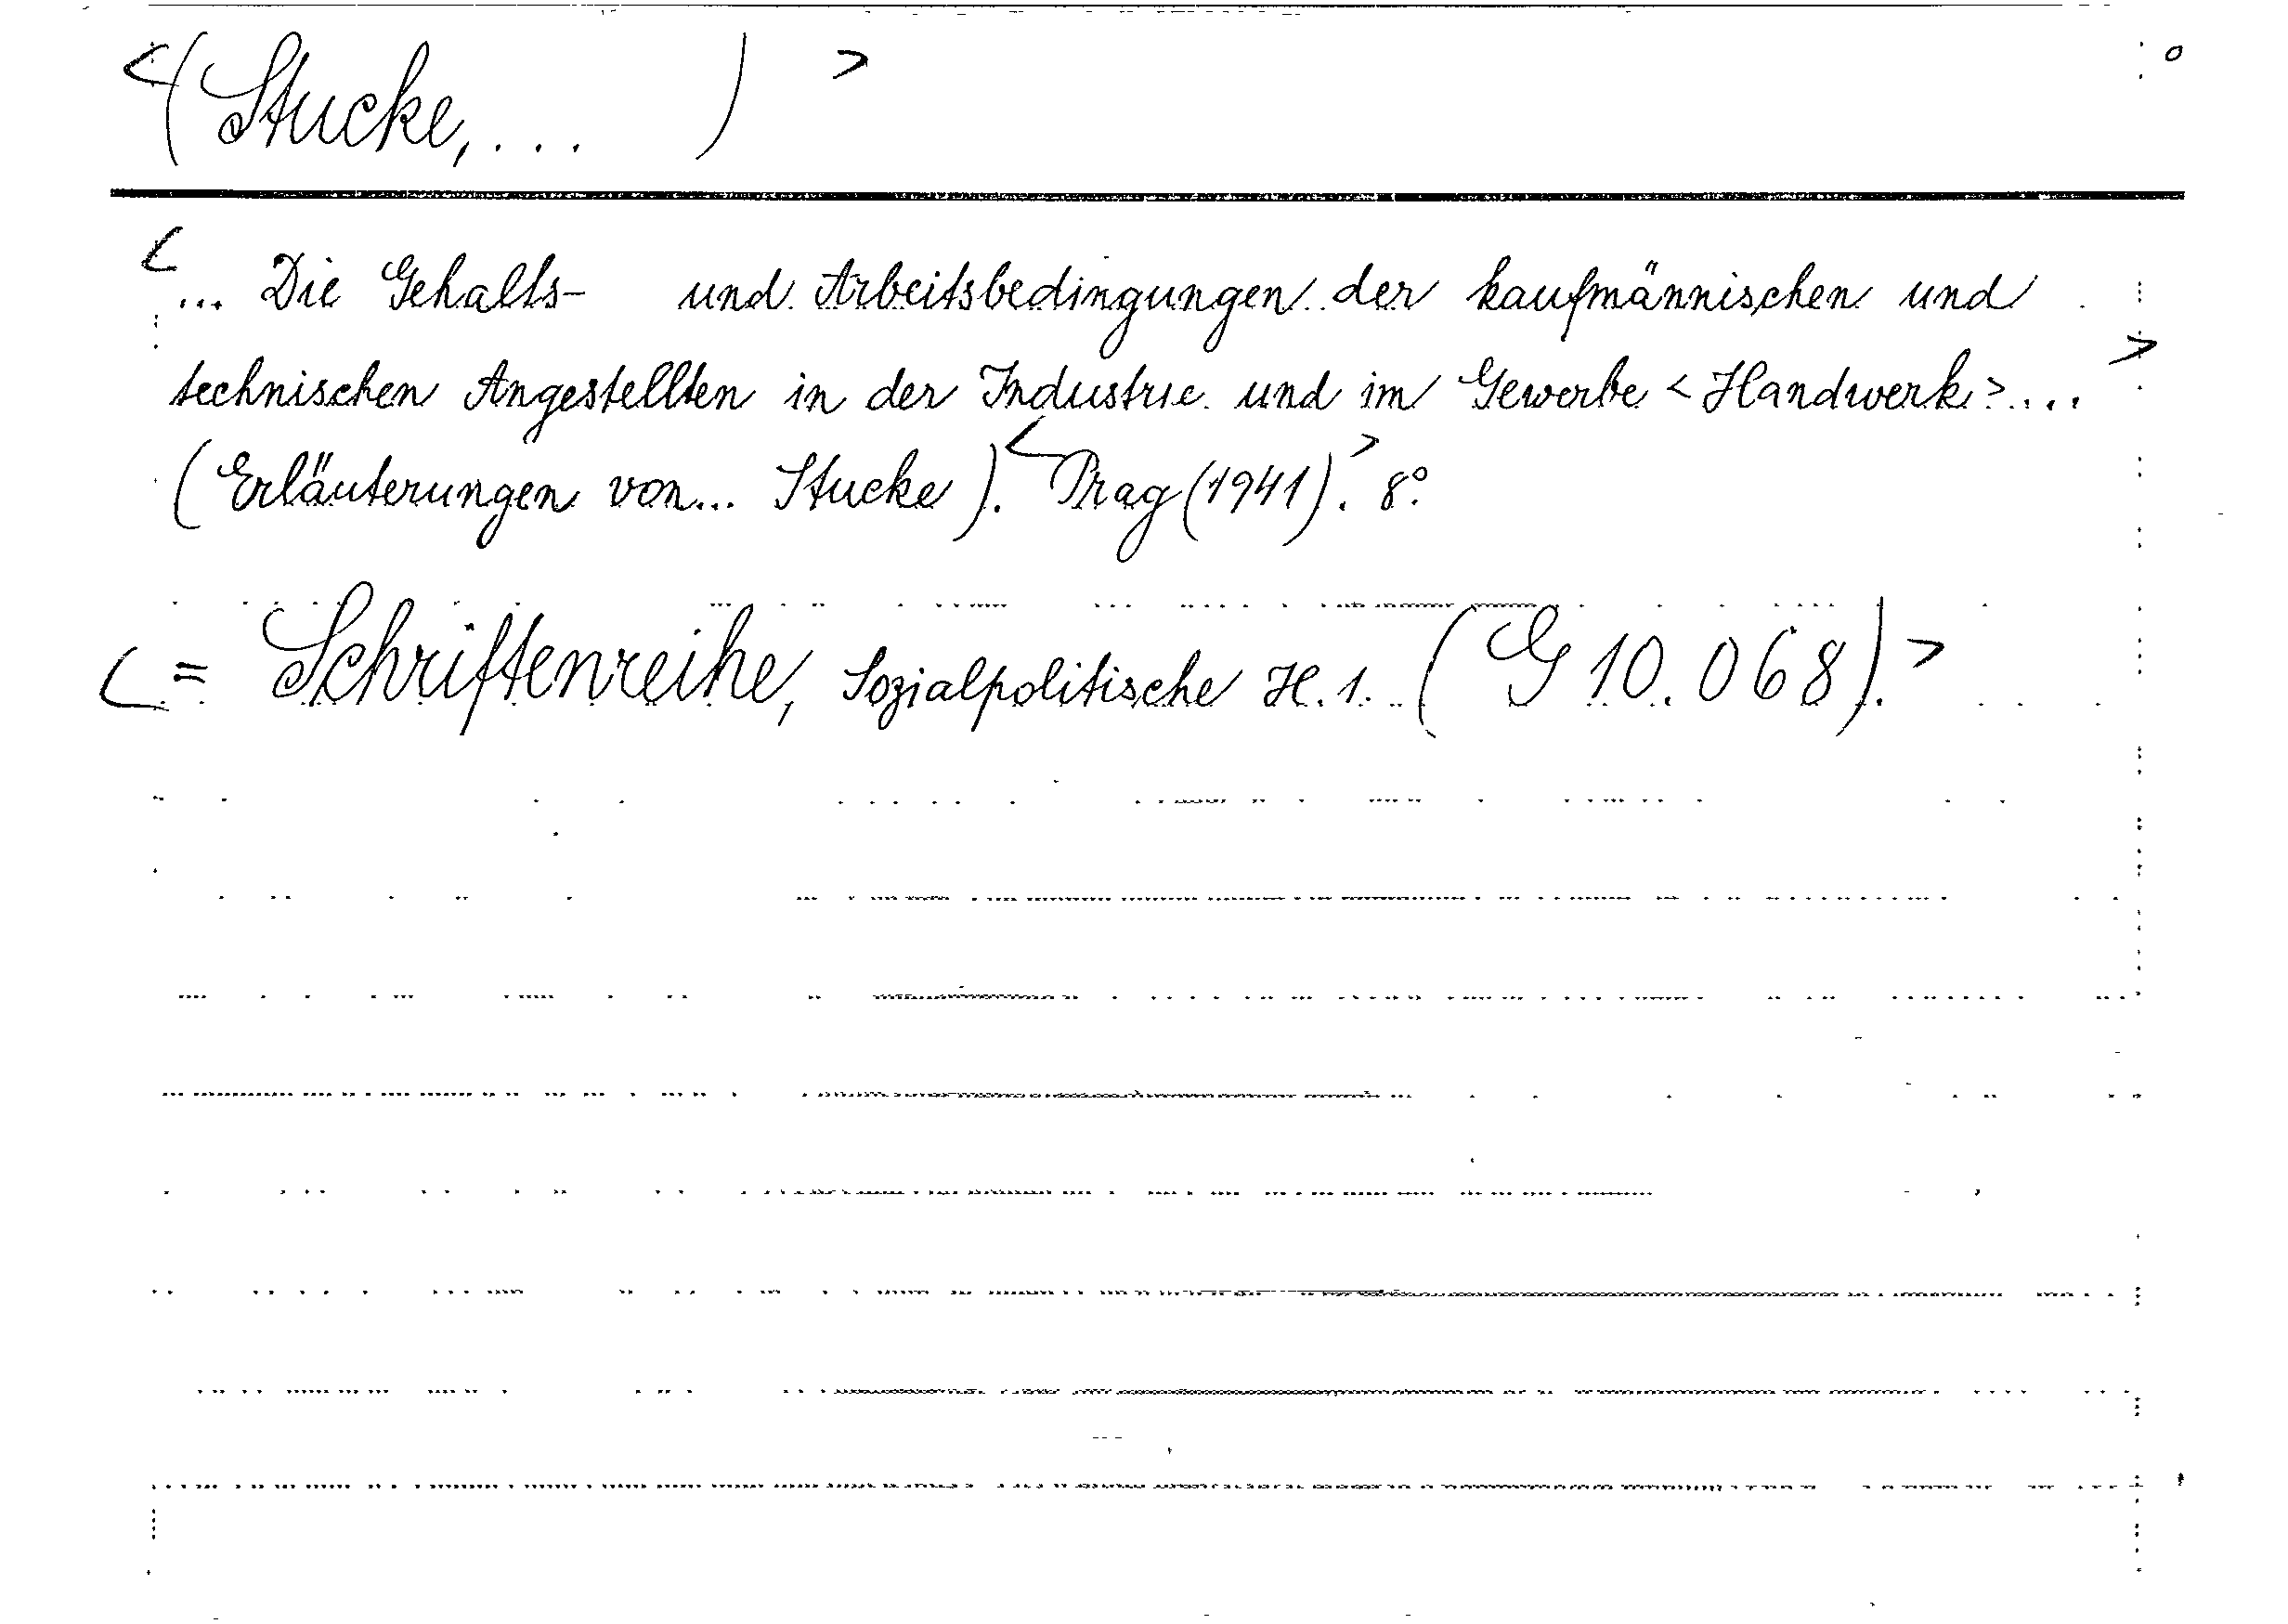 <(Stucke,... )>
<... Die Gehalts- und Arbeitsbedingungen der kaufmännischen und
technischen Angestellten in der Industrie und im Gewerbe <Handwerk>...>
(Erläuterungen von... Stucke). <Prag (1941).> 8°.
<= Schriftenreihe, Sozialpolitische H. 1. (G 10.068).>